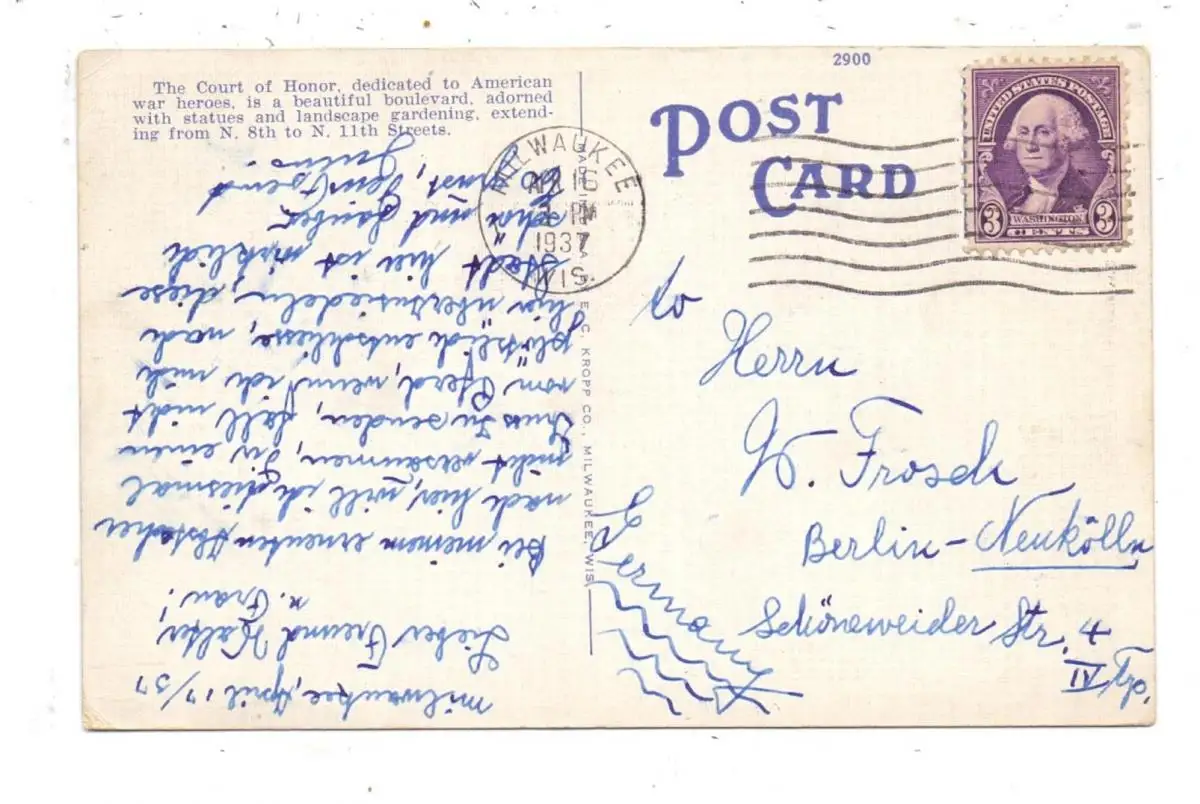 The Court of Honor, dedicated to American
war heroes, is a beautiful boulevard, adorned
with statues and landscape gardening, extend-
ing from N. 8th to N. 11th Streets.
2900
POST
CARD
UNITED STATES POSTAGE
3 WASHINGTON 3
CENTS
MILWAUKEE
1937
WIS.
MADE IN U.S.A. E. C. KROPP CO., MILWAUKEE, WIS.
to
Herrn
W. Frosch
Berlin-Neukölln
Schöneweider Str. 4
IV
Germany
Milwaukee, April 17/37
Lieber Freund Walter,
u. Frau!
Bei meinem erneuten Abstecher
nach hier, will ich diesmal
nicht versäumen, Dir einen
Gruss zu senden, fall nicht
vom Pferd, wenn ich mich
plötzlich entschliesse, nach
hier überzusiedeln, diese
Stadt hier ist wirklich
schön und sauber